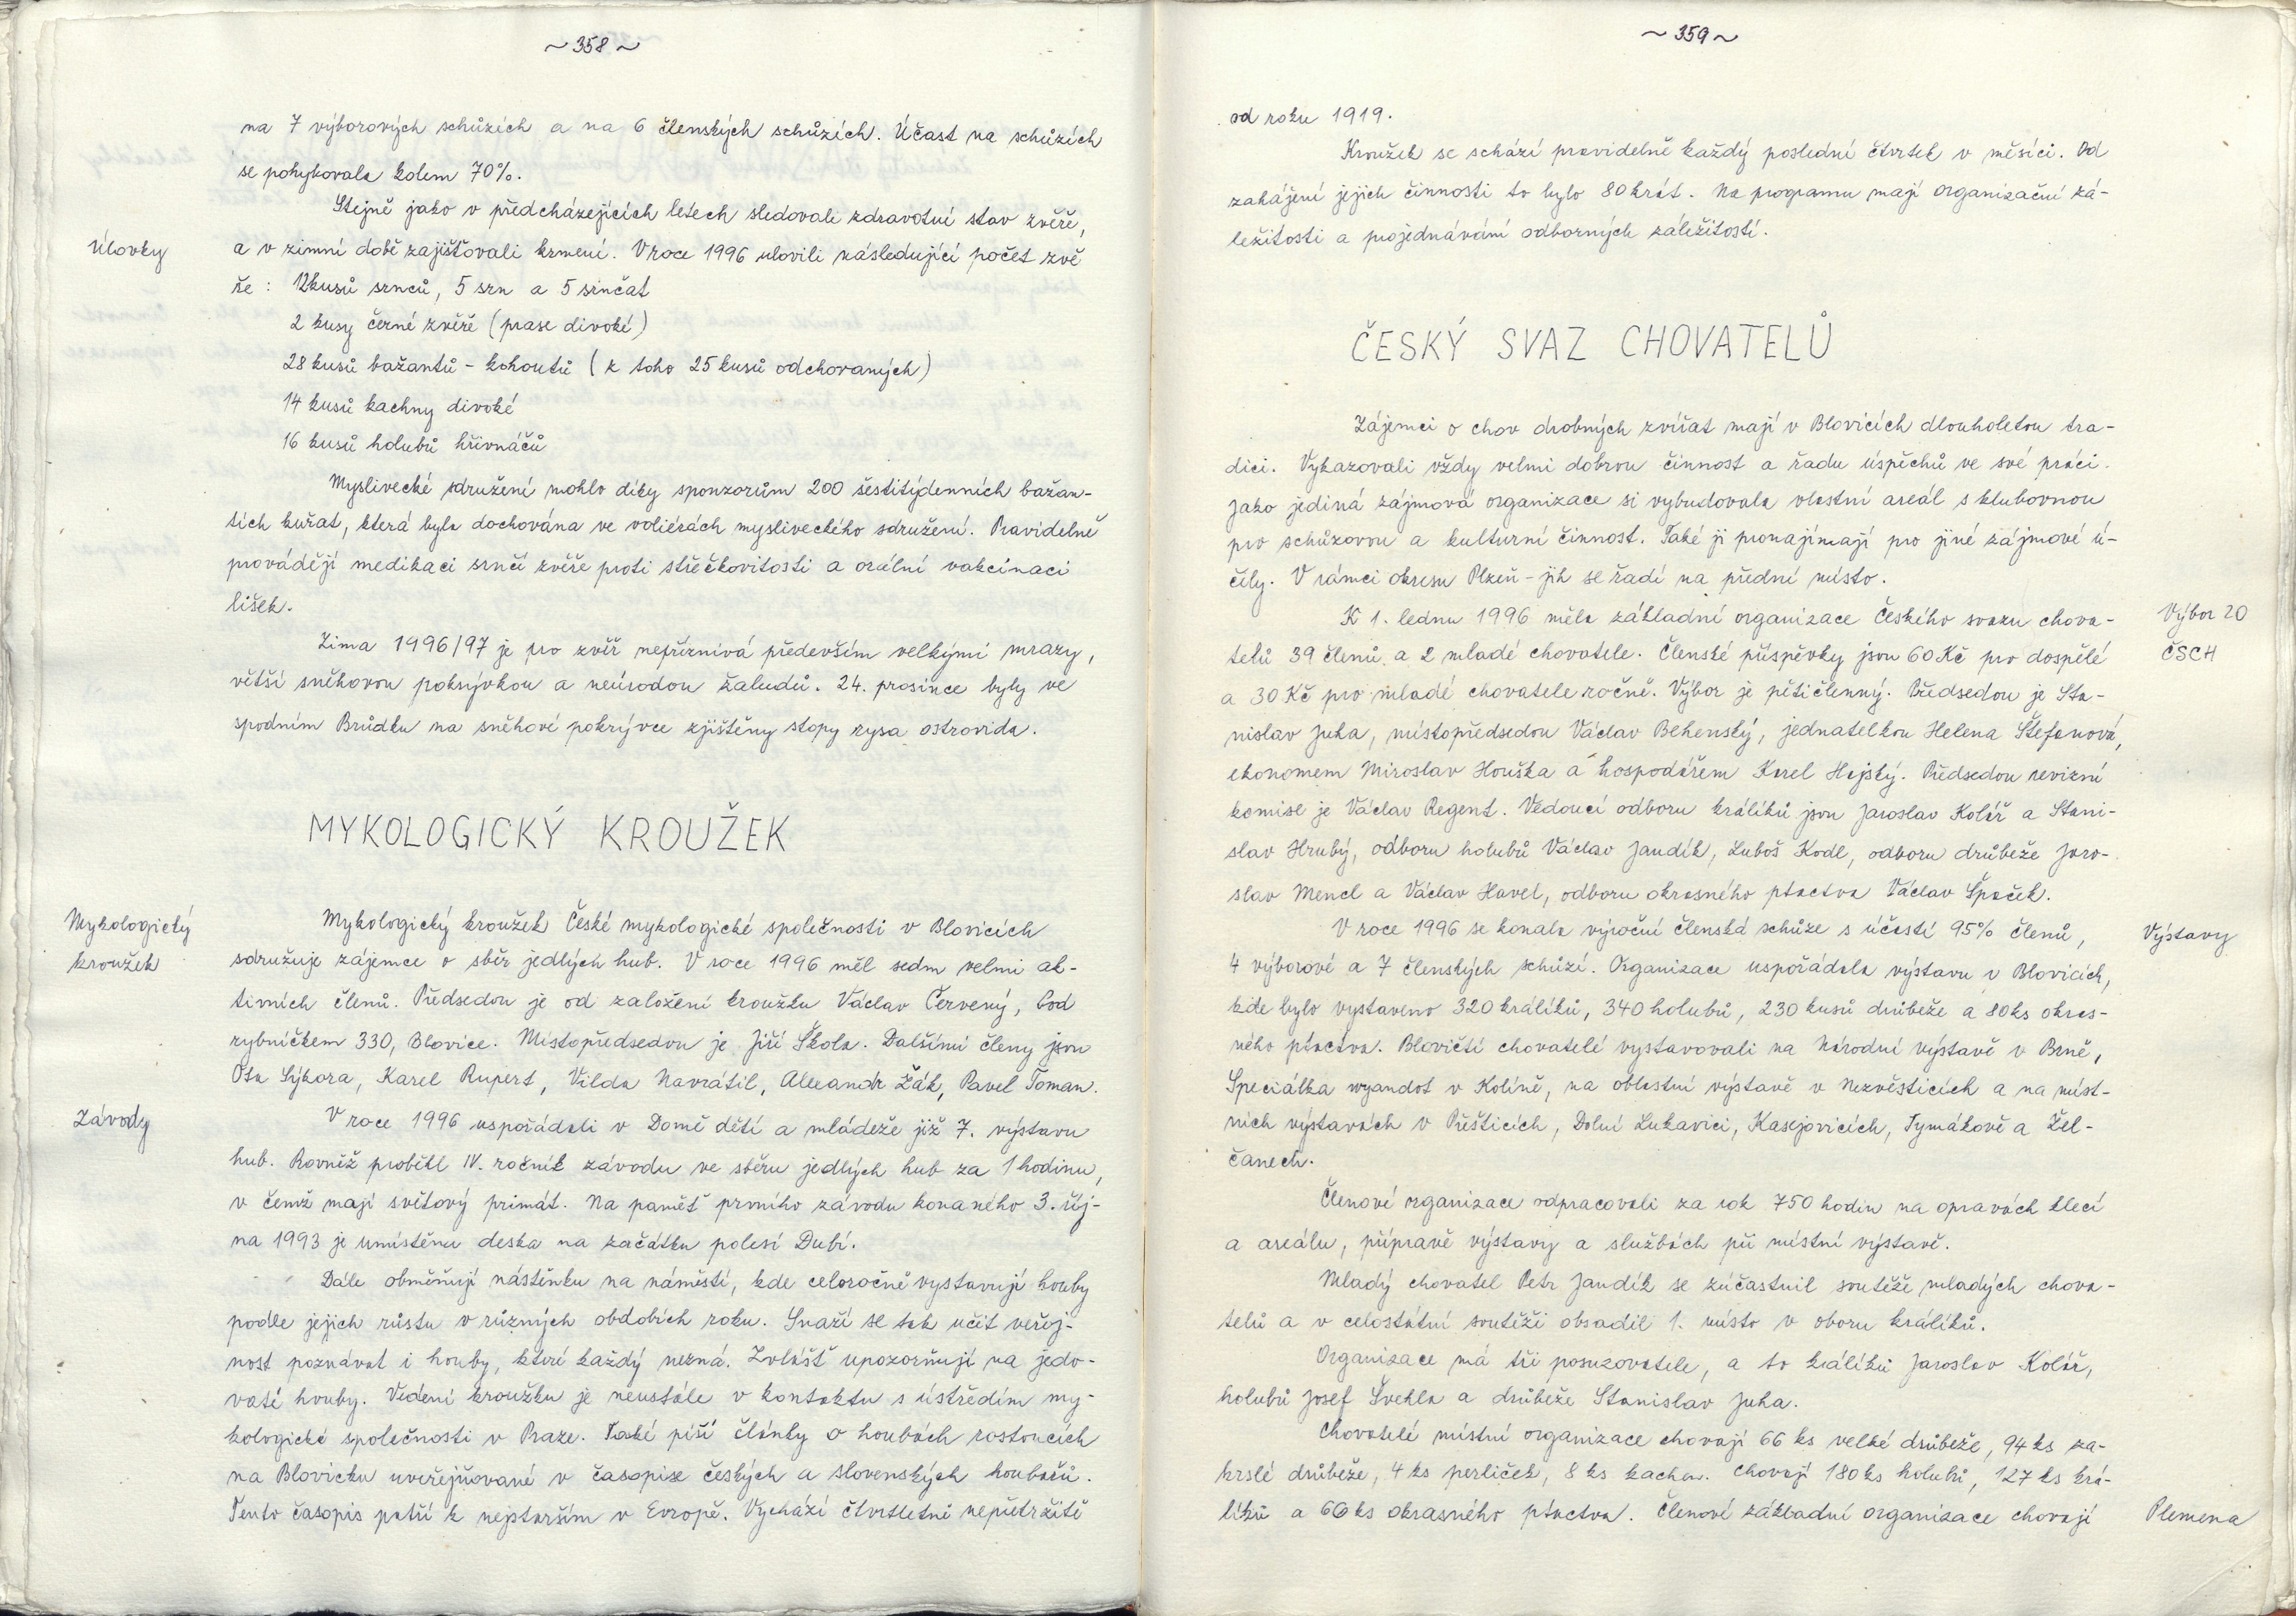 ~ 358 ~
na 7 výborových schůzích a na 6 členských schůzích. Účast na schůzích
se pohybovala kolem 70%.
Stejně jako v předcházejících letech sledovali zdravotní stav zvěře,
Úlovky
a v zimní době zajišťovali krmení. V roce 1996 ulovili následující počet zvě
ře : 12 kusů srnců, 5 srn a 5 srnčat
2 kusy černé zvěře (prase divoké)
28 kusů bažantů - kohoutů (z toho 25 kusů odchovaných)
14 kusů kachny divoké
16 kusů holubů hřivnáčů
Myslivecké sdružení mohlo díky sponzorům 200 šestitýdenních bažan-
tích kuřat, která byla dochována ve voliérách mysliveckého sdružení. Pravidelně
provádějí medikaci srnčí zvěře proti střečkovitosti a orální vakcinaci
lišek.
Zima 1996/97 je pro zvěř nepříznivá především velkými mrazy,
větší sněhovou pokrývkou a neúrodou žaludů. 24. prosince byly ve
spodním Brůdku na sněhové pokrývce zjištěny stopy rysa ostrovida.
MYKOLOGICKÝ KROUŽEK
Mykologický
kroužek
Mykologický kroužek České mykologické společnosti v Blovicích
sdružuje zájemce o sběr jedlých hub. V roce 1996 měl sedm velmi ak-
tivních členů. Předsedou je od založení kroužku Václav Červený, Pod
rybníčkem 330, Blovice. Místopředsedou je Jiří Škola. Dalšími členy jsou
Ota Sýkora, Karel Rupert, Vilda Navrátil, Alexandr Žák, Pavel Toman.
Závody
V roce 1996 uspořádali v Domě dětí a mládeže již 7. výstavu
hub. Rovněž proběhl IV. ročník závodu ve sběru jedlých hub za 1 hodinu,
v čemž mají světový primát. Na paměť prvního závodu konaného 3. říj-
na 1993 je umístěna deska na začátku polesí Dubí.
Dále obměňují nástěnku na náměstí, kde celoročně vystavují houby
podle jejich růstu v různých obdobích roku. Snaží se tak učit veřej-
nost poznávat i houby, které každý nezná. Zvlášť upozorňují na jedo-
vaté houby. Vedení kroužku je neustále v kontaktu s ústředím my-
kologické společnosti v Praze. Také píší články o houbách rostoucích
na Blovicku uveřejňované v časopise českých a slovenských houbařů.
Tento časopis patří k nejstarším v Evropě. Vychází čtvrtletně nepřetržitě
~ 359 ~
od roku 1919.
Kroužek se schází pravidelně každý poslední čtvrtek v měsíci. Od
zahájení jejich činnosti to bylo 80 krát. Na programu mají organizační zá-
ležitosti a projednávání odborných záležitostí.
ČESKÝ SVAZ CHOVATELŮ
Zájemci o chov drobných zvířat mají v Blovicích dlouholetou tra-
dici. Vykazovali vždy velmi dobrou činnost a řadu úspěchů ve své práci.
Jako jediná zájmová organizace si vybudovala vlastní areál s klubovnou
pro schůzovou a kulturní činnost. Také ji pronajímají pro jiné zájmové ú-
čely. V rámci okresu Plzeň - jih se řadí na přední místo.
K 1. lednu 1996 měla základní organizace Českého svazu chova-
Výbor ZO
telů 39 členů a 2 mladé chovatele. Členské příspěvky jsou 60 Kč pro dospělé
ČSCH
a 30 Kč pro mladé chovatele ročně. Výbor je pětičlenný. Předsedou je Sta-
nislav Juha, místopředsedou Václav Behenský, jednatelkou Helena Štefanová,
ekonomem Miroslav Houška a hospodářem Karel Hajský. Předsedou revizní
komise je Václav Regent. Vedoucí odboru králíků jsou Jaroslav Kolář a Stani-
slav Hrubý, odboru holubů Václav Jandík, Luboš Kodl, odboru drůbeže Jaro-
slav Mencl a Václav Havel, odboru okrasného ptactva Václav Špaček.
V roce 1996 se konala výroční členská schůze s účastí 95% členů,
Výstavy
4 výborové a 7 členských schůzí. Organizace uspořádala výstavu v Blovicích,
kde bylo vystaveno 320 králíků, 340 holubů, 230 kusů drůbeže a 80 ks okras-
ného ptactva. Blovičtí chovatelé vystavovali na Národní výstavě v Brně,
Speciálka wyandot v Kolíně, na oblastní výstavě v Nezvěsticích a na míst-
ních výstavách v Přešticích, Dolní Lukavici, Kasejovicích, Tymákově a Žel-
čanech.
Členové organizace odpracovali za rok 750 hodin na opravách klecí
a areálu, přípravě výstavy a službách při místní výstavě.
Mladý chovatel Petr Jandík se zúčastnil soutěže mladých chova-
telů a v celostátní soutěži obsadil 1. místo v oboru králíků.
Organizace má tři posuzovatele, a to králíků Jaroslav Kolář,
holubů Josef Švehla a drůbeže Stanislav Juha.
Chovatelé místní organizace chovají 66 ks velké drůbeže, 94 ks za-
krslé drůbeže, 4 ks perliček, 8 ks kachen. Chovají 180 ks holubů, 127 ks krá-
líků a 66 ks okrasného ptactva. Členové základní organizace chovají
Plemena